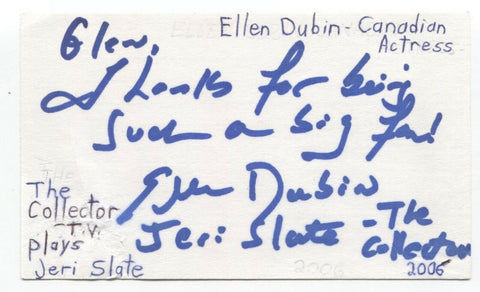 Ellen Dubin - Canadian
Actress
Glen,
Thanks for being
such a big fan!
Ellen Dubin
Jeri Slate - The
Collector
The
Collector
T.V.
plays
Jeri Slate
2006